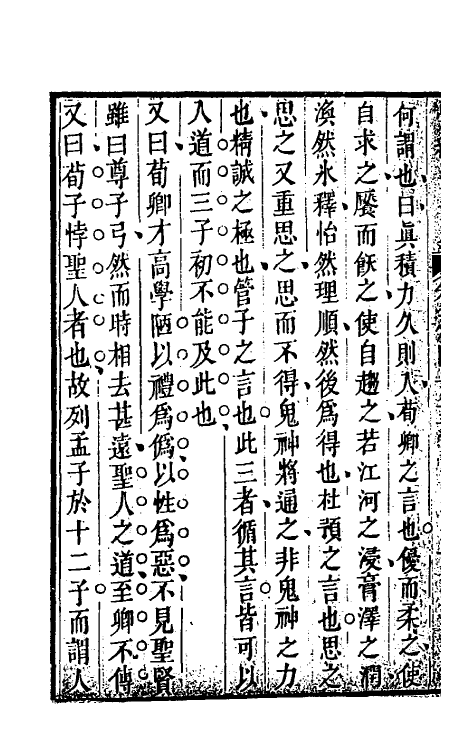 何謂也曰眞積力久則入荀卿之言也優而柔之使
自求之饜而飫之使自趨之若江河之浸膏澤之潤
渙然氷釋怡然理順然後爲得也杜預之言也思之
思之又重思之思而不得鬼神將通之非鬼神之力
也精誠之極也管子之言也此三者循其言皆可以
入道而三子初不能及此也
又曰荀卿才高學陋以禮爲僞以性爲惡不見聖賢
雖曰尊子弓然而時相去甚遠聖人之道至卿不傳
又曰荀子悖聖人者也故列孟子於十二子而謂人